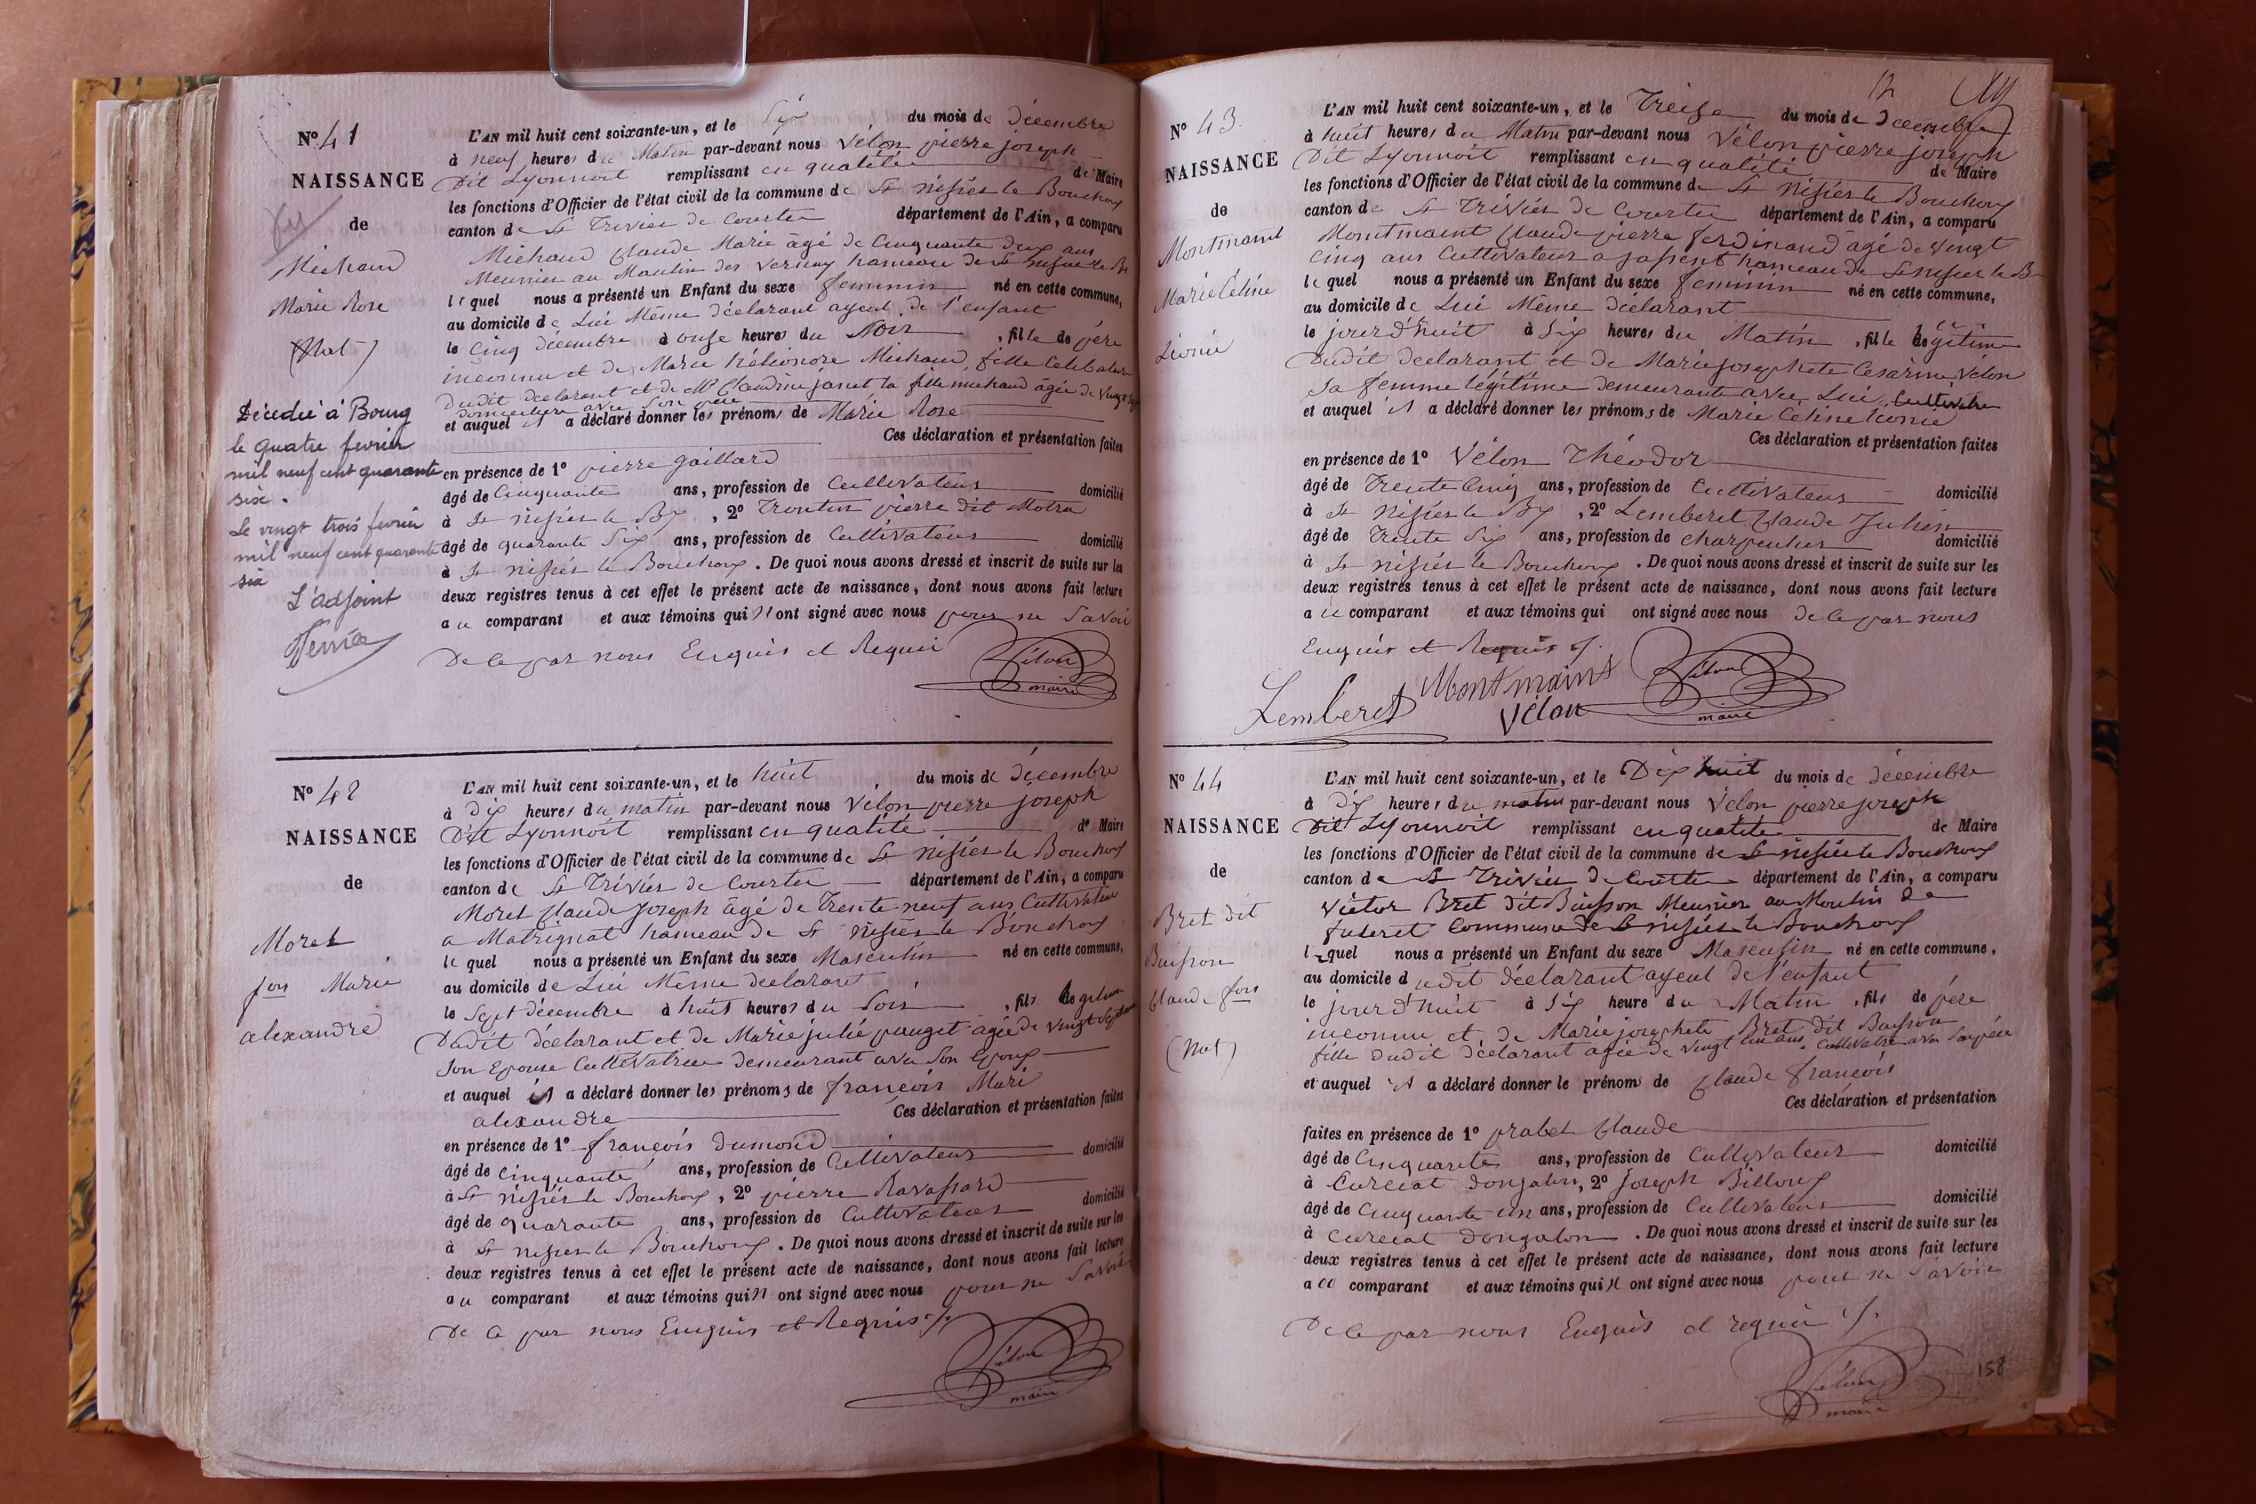 N° 41
NAISSANCE
de
Michaud
Marie Rose
(Nat)
Décédée à Bourg
le quatre fevrier
mil neuf cent quarante
six.
Le vingt trois fevrier
mil neuf cent quarante
six
L'adjoint
L'AN mil huit cent soixante-un, et le Six du mois de décembre
à neuf heures du Matin par-devant nous Vélon pierre joseph
Dit Lyonnoit remplissant en qualité de Maire
les fonctions d'Officier de l'état civil de la commune de St Nisier le Bouchoux
canton de St Trivier de Courtes département de l'Ain, a comparu
Michaud Claude Marie âgé de Cinquante deux ans
Meunier au Moulin des Vernay hameau de St nisier le Bx
lequel nous a présenté un Enfant du sexe feminin né en cette commune,
au domicile de Lui Même déclarant ayeul de l'enfant
le cinq décembre à onze heures du Soir, fille de père
inconnu et de Marie hélionore Michaud, fille Celibataire
Dudit declarant et de Mie Claudine janet la fille michaud âgée de Vingt
domiciliée avec son père
et auquel il a déclaré donner les prénoms de Marie Rose
Ces déclaration et présentation faites
en présence de 1° pierre gaillard
âgé de Cinquante ans, profession de Cultivateur domicilié
à St nisier le Bx, 2° Trontin pierre dit Motra
âgé de quarante Six ans, profession de Cultivateur domicilié
à St nisier le Bouchoux. De quoi nous avons dressé et inscrit de suite sur les
deux registres tenus à cet effet le présent acte de naissance, dont nous avons fait lecture
au comparant et aux témoins qui n'ont signé avec nous pour ne Savoir
De ce par nous Enquis et Requis
Vélon
maire
N° 42
NAISSANCE
de
Moret
fois Marie
alexandre
L'AN mil huit cent soixante-un, et le huit du mois de décembre
à Dix heures du matin par-devant nous Vélon pierre joseph
Dit Lyonnoit remplissant en qualité de Maire
les fonctions d'Officier de l'état civil de la commune de St nisier le Bouchoux
canton de St Trivier de Courtes département de l'Ain, a comparu
Moret Claude Joseph âgé de Trente neuf ans Cultivateur
a Matrignat hameau de St nisier le Bouchoux
lequel nous a présenté un Enfant du sexe Masculin né en cette commune,
au domicile de Lui Même declarant
le Sept décembre à huit heures du Soir, fils légitime
Dudit déclarant et de Marie julie pauget âgée de vingt Sept ans
Son Epouse Cultivatrice demeurant avec Son Epoux
et auquel il a déclaré donner les prénoms de françois Marie
alexandre
Ces déclaration et présentation faites
en présence de 1° françois dumond
âgé de cinquante ans, profession de Cultivateur domicilié
à St nisier le Bouchoux, 2° pierre Ravassard
âgé de quarante ans, profession de Cultivateur domicilié
à St nisier le Bouchoux. De quoi nous avons dressé et inscrit de suite sur les
deux registres tenus à cet effet le présent acte de naissance, dont nous avons fait lecture
au comparant et aux témoins qui n'ont signé avec nous pour ne Savoir
De ce par nous Enquis et Requis ./.
Vélon
maire
12
N° 43
NAISSANCE
de
Montmaint
Marie Céline
Léonie
L'AN mil huit cent soixante-un, et le Treize du mois de décembre
à huit heures du Matin par-devant nous Vélon pierre joseph
Dit Lyonnoit remplissant en qualité de Maire
les fonctions d'Officier de l'état civil de la commune de St Nisier le Bouchoux
canton de St Trivier de Courtes département de l'Ain, a comparu
Montmaint Claude pierre ferdinand âgé de vingt
cinq ans Cultivateur a japsent hameau de St nisier le Bx
lequel nous a présenté un Enfant du sexe feminin né en cette commune,
au domicile de Lui Même déclarant
le jourd'huit à Six heures du Matin, fille légitime
Dudit declarant et de Marie josephete Cesarine Vélon
Sa femme légitime demeurante avec Lui, Cultivatrice
et auquel il a déclaré donner les prénoms de Marie Celine Léonie
Ces déclaration et présentation faites
en présence de 1° Vélon Théodor
âgé de Trente Cinq ans, profession de Cultivateur domicilié
à St Nisier le Bx, 2° Lemberet Claude Julien
âgé de Trente Six ans, profession de charpentier domicilié
à St nisier le Bouchoux. De quoi nous avons dressé et inscrit de suite sur les
deux registres tenus à cet effet le présent acte de naissance, dont nous avons fait lecture
au comparant et aux témoins qui ont signé avec nous de ce par nous
Enquis et Requis ./.
Lemberet Montmaint Vélon
Vélon maire
N° 44
NAISSANCE
de
Bret dit
Buisson
Claude fois
(Nat)
L'AN mil huit cent soixante-un, et le Dix huit du mois de décembre
à Dix heures du matin par-devant nous Vélon pierre joseph
Dit Lyonnoit remplissant en qualité de Maire
les fonctions d'Officier de l'état civil de la commune de St nisier le Bouchoux
canton de St Trivier de Courtes département de l'Ain, a comparu
Victor Bret dit Buisson Meunier au Moulin de
futeret Commune de St nisier le Bouchoux
lequel nous a présenté un Enfant du sexe Masculin né en cette commune,
au domicile dudit déclarant ayeul de l'enfant
le jourd'huit à Six heure du Matin, fils de père
inconnu et de Marie josephete Bret dit Buisson
fille dudit déclarant agée de vingt un ans, Cultivatrice avec Son père
et auquel il a déclaré donner le prénoms de Claude françois
Ces déclaration et présentation
faites en présence de 1° prabel Claude
âgé de Cinquante ans, profession de Cultivateur domicilié
à Curciat dongalon, 2° Joseph Billoux
âgé de Cinquante un ans, profession de Cultivateur domicilié
à Curciat Dongalon. De quoi nous avons dressé et inscrit de suite sur les
deux registres tenus à cet effet le présent acte de naissance, dont nous avons fait lecture
au comparant et aux témoins qui n'ont signé avec nous pour ne Savoir
De ce par nous Enquis et requis ./.
Vélon
maire
158